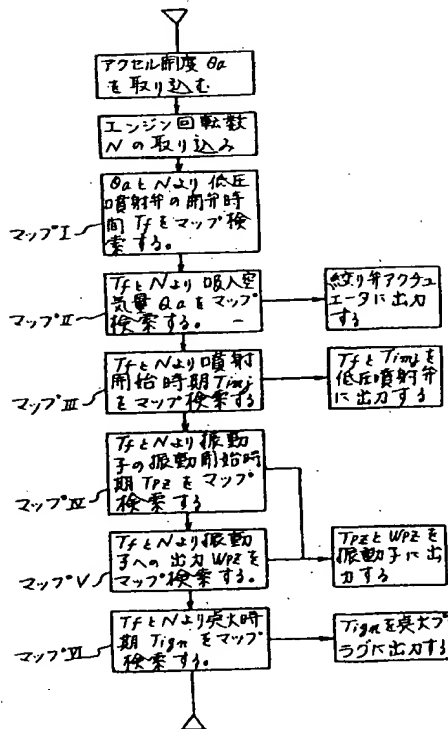 アクセル開度 θa
を取り込む
エンジン回転数
Nの取り込み
マップI
θaとNより低圧
噴射弁の開弁時
間Tfをマップ検
索する。
マップII
TfとNより吸入空
気量Qaをマップ
検索する。
絞り弁アクチュ
エータに出力
する
マップIII
TfとNより噴射
開始時期Tinj
をマップ検索する
TfとTinjを
低圧噴射弁
に出力する
マップIV
TfとNより振動
子の振動開始時
期TPZをマップ
検索する
マップV
TfとNより振動
子への出力WPZを
マップ検索する。
TPZとWPZを
振動子に出
力する
マップVI
TfとNより点火時
期Tignをマップ
検索する。
Tignを点火プ
ラグに出力する